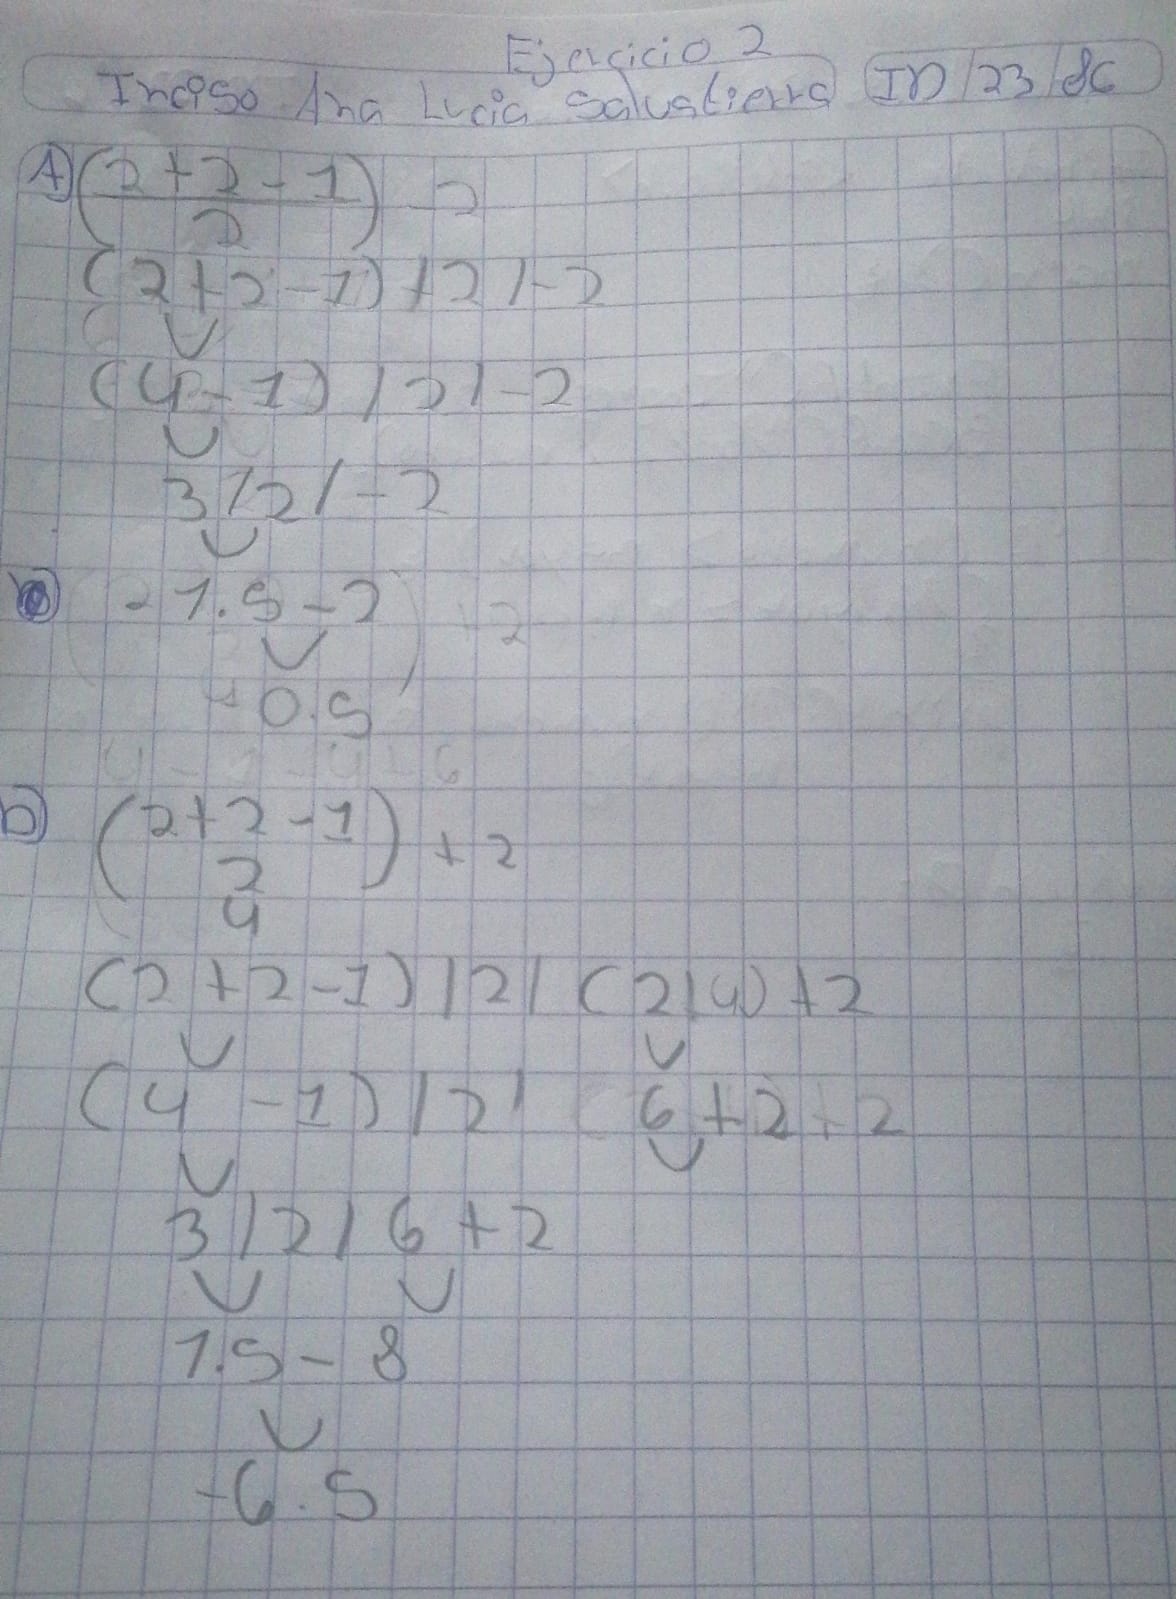 Ejercicio 2
Inciso Ana Lucia Salvatierra ID/23/86
A) (2+2-1) -2
2
(2+2-1)/2/-2
(4-1)/2/-2
3/2/-2
-1.5-2
-0.5
b) (2+2-1) +2
2
4
(2+2-1)/2/(2/4)+2
(4-1)/2/ 6+2+2
3/2/6+2
1.5-8
-6.5